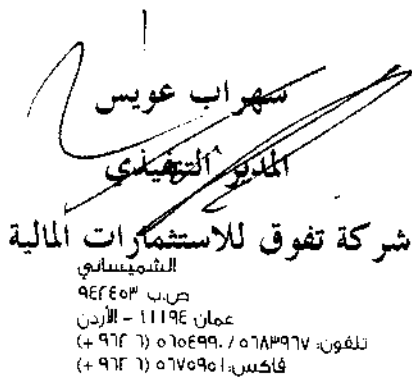 سهراب عويس
المدير التنفيذي
شركة تفوق للاستثمارات المالية
الشميساني
ص.ب ٩٤٢٤٥٣
عمان ١١١٩٤ – الأردن
تلفون: ٥٦٨٣٩٦٧ / ٥٦٥٤٩٩٠ (٦ ٩٦٢ +)
فاكس: ٥٦٧٥٩٥١ (٦ ٩٦٢ +)